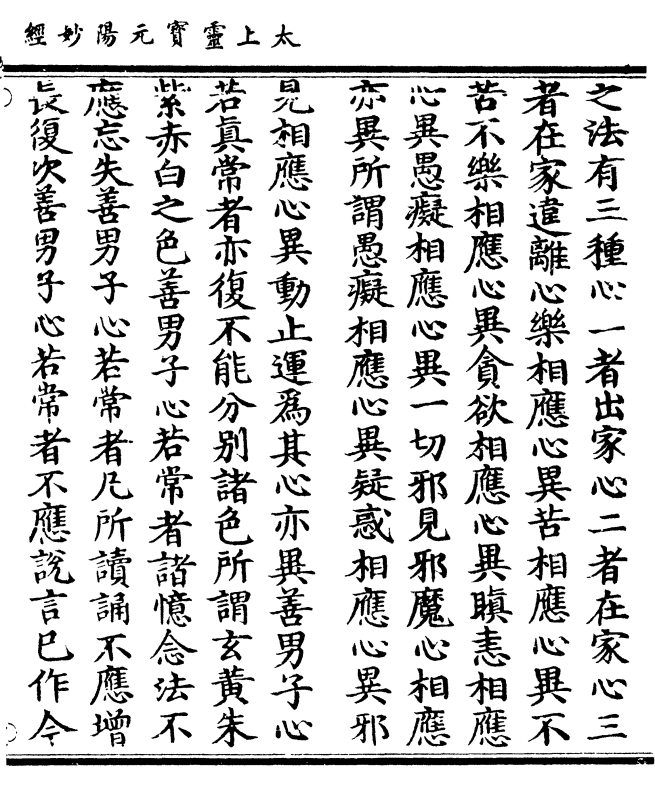 太上靈寶元陽妙經
之法有三種心一者出家心二者在家心三
者在家違離心樂相應心異苦相應心異不
苦不樂相應心異貪欲相應心異瞋恚相應
心異愚癡相應心異一切邪見邪魔心相應
亦異所謂愚癡相應心異疑惑相應心異邪
見相應心異動止運爲其心亦異善男子心
若眞常者亦復不能分别諸色所謂玄黃朱
紫赤白之色善男子心若常者諸憶念法不
應忘失善男子心若常者凡所讀誦不應增
長復次善男子心若常者不應說言已作今